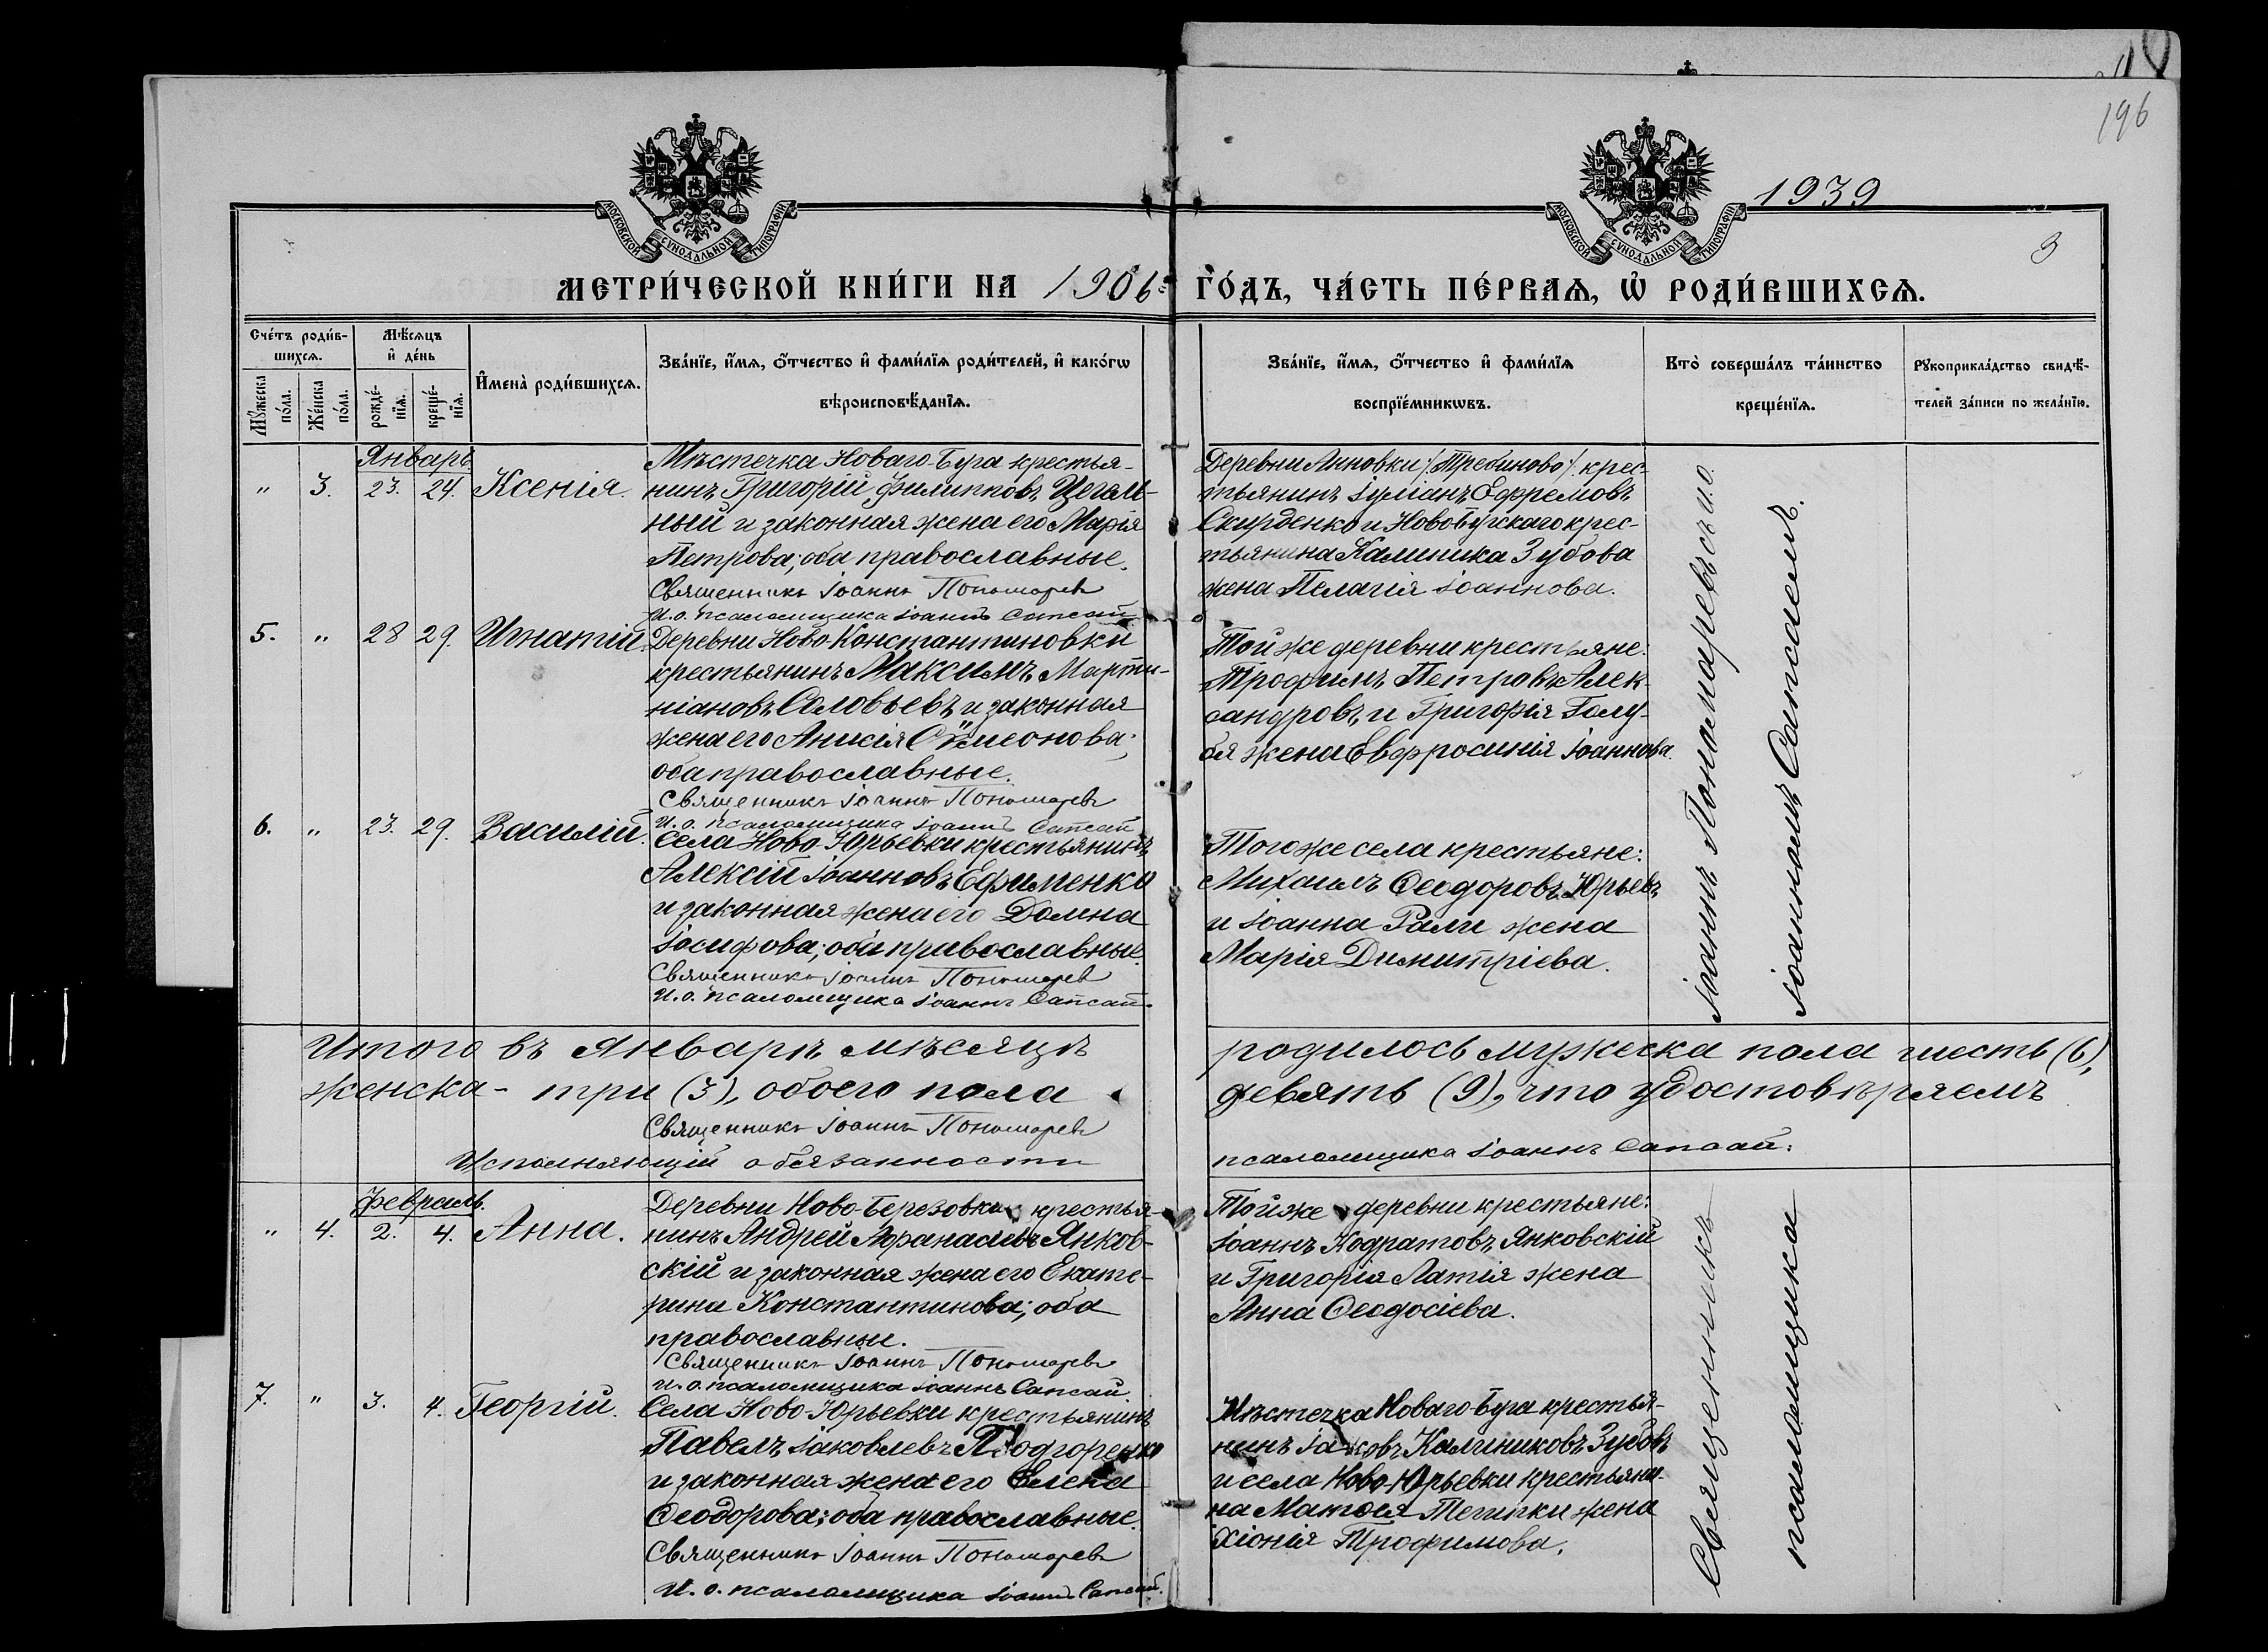 196
1939
3
МОСКОВСКОЙ СѴНОДАЛЬНОЙ ТИПОГРАФІИ
МОСКОВСКОЙ СѴНОДАЛЬНОЙ ТИПОГРАФІИ
МЕТРИ́ЧЕСКОЙ КНИ́ГИ НА 1906 ГО́ДЪ, ЧА́СТЬ ПЕ́РВАѦ, Ѡ҆ РОДИ́ВШИХСѦ.
Сче́тъ роди́в-
шихсѧ.
Мꙋ́жеска по́ла.
Же́нска по́ла.
Мѣ́сѧцъ
и҆ де́нь
рожде́-
нїѧ.
креще́-
нїѧ.
И҆мена̀ роди́вшихсѧ.
Зва́нїе, и҆́мѧ, ѻ҆́тчество и҆ фами́лїѧ роди́телей, и҆ како́гѡ
вѣроисповѣ́данїѧ.
Зва́нїе, и҆́мѧ, ѻ҆́тчество и҆ фами́лїѧ
воспрїе́мникѡвъ.
Кто̀ соверша́лъ та́инство
креще́нїѧ.
Рꙋкоприкла́дство свидѣ́-
телей за́писи по жела́нїю.
Январь
" 3. 23. 24. Ксенія.
Мѣстечка Новаго-Буга крестья-
нинъ Григорій Филипповъ Цегель-
ный и законная жена его Марія
Петрова; оба православные.
Священникъ Іоаннъ Пономаревъ
И. о. псаломщика Іоаннъ Сапсай
Деревни Анновки /: Требиново :/ крес-
тьянинъ Іуліанъ Ефремовъ
Скирденко и Новобугскаго крес-
тьянина Калиника Зубова
жена Пелагія Іоаннова.
5. " 28 29. Игнатій.
Деревни Ново-Константиновки
крестьянинъ Максимъ Марти-
ніановъ Соловьевъ и законная
жена его Анисія Сѵмеонова;
оба православные.
Священникъ Іоаннъ Пономаревъ
И. о. псаломщика Іоаннъ Сапсай
Той же деревни крестьяне:
Трофимъ Петровъ Алек-
сандровъ и Григорія Голу-
бя жена Евфросинія Іоаннова.
6. " 23. 29. Василій.
Села Ново-Юрьевки крестьянинъ
Алексій Іоанновъ Ефименко
и законная жена его Домна
Іосифова; оба православные.
Священникъ Іоаннъ Пономаревъ
И. о. псаломщика Іоаннъ Сапсай
Того же села крестьяне:
Михаилъ Ѳеодоровъ Юрьевъ
и Іоанна Рали жена
Марія Димитріева.
Іоаннъ Пономаревъ съ и. о.
Іоанномъ Сапсаемъ.
Итого въ Январѣ мѣсяцѣ родилось мужеска пола шесть (6),
женска - три (3), обоего пола девять (9), что удостовѣряемъ
Священникъ Іоаннъ Пономаревъ
Исполняющій обязанности псаломщика Іоаннъ Сапсай.
Февраль.
" 4. 2. 4. Анна.
Деревни Ново-Березовки крестья-
нинъ Андрей Афанасіевъ Янков-
скій и законная жена его Екате-
рина Константинова; оба
православные.
Священникъ Іоаннъ Пономаревъ
И. о. псаломщика Іоаннъ Сапсай
Той же деревни крестьяне:
Іоаннъ Кодратовъ Янковскій
и Григорія Латія жена
Анна Ѳеодосіева.
7. " 3. 4. Георгій.
Села Ново-Юрьевки крестьянинъ
Павелъ Іаковлевъ Подгоренко
и законная жена его Елена
Ѳеодорова; оба православные.
Священникъ Іоаннъ Пономаревъ
И. о. псаломщика Іоаннъ Сапсай.
Мѣстечка Новаго-Буга крестья-
нинъ Іаковъ Калиниковъ Зубовъ
и села Ново-Юрьевки крестьяни-
на Матѳея жена
Хіонія Трофимова.
Священникъ
псаломщика